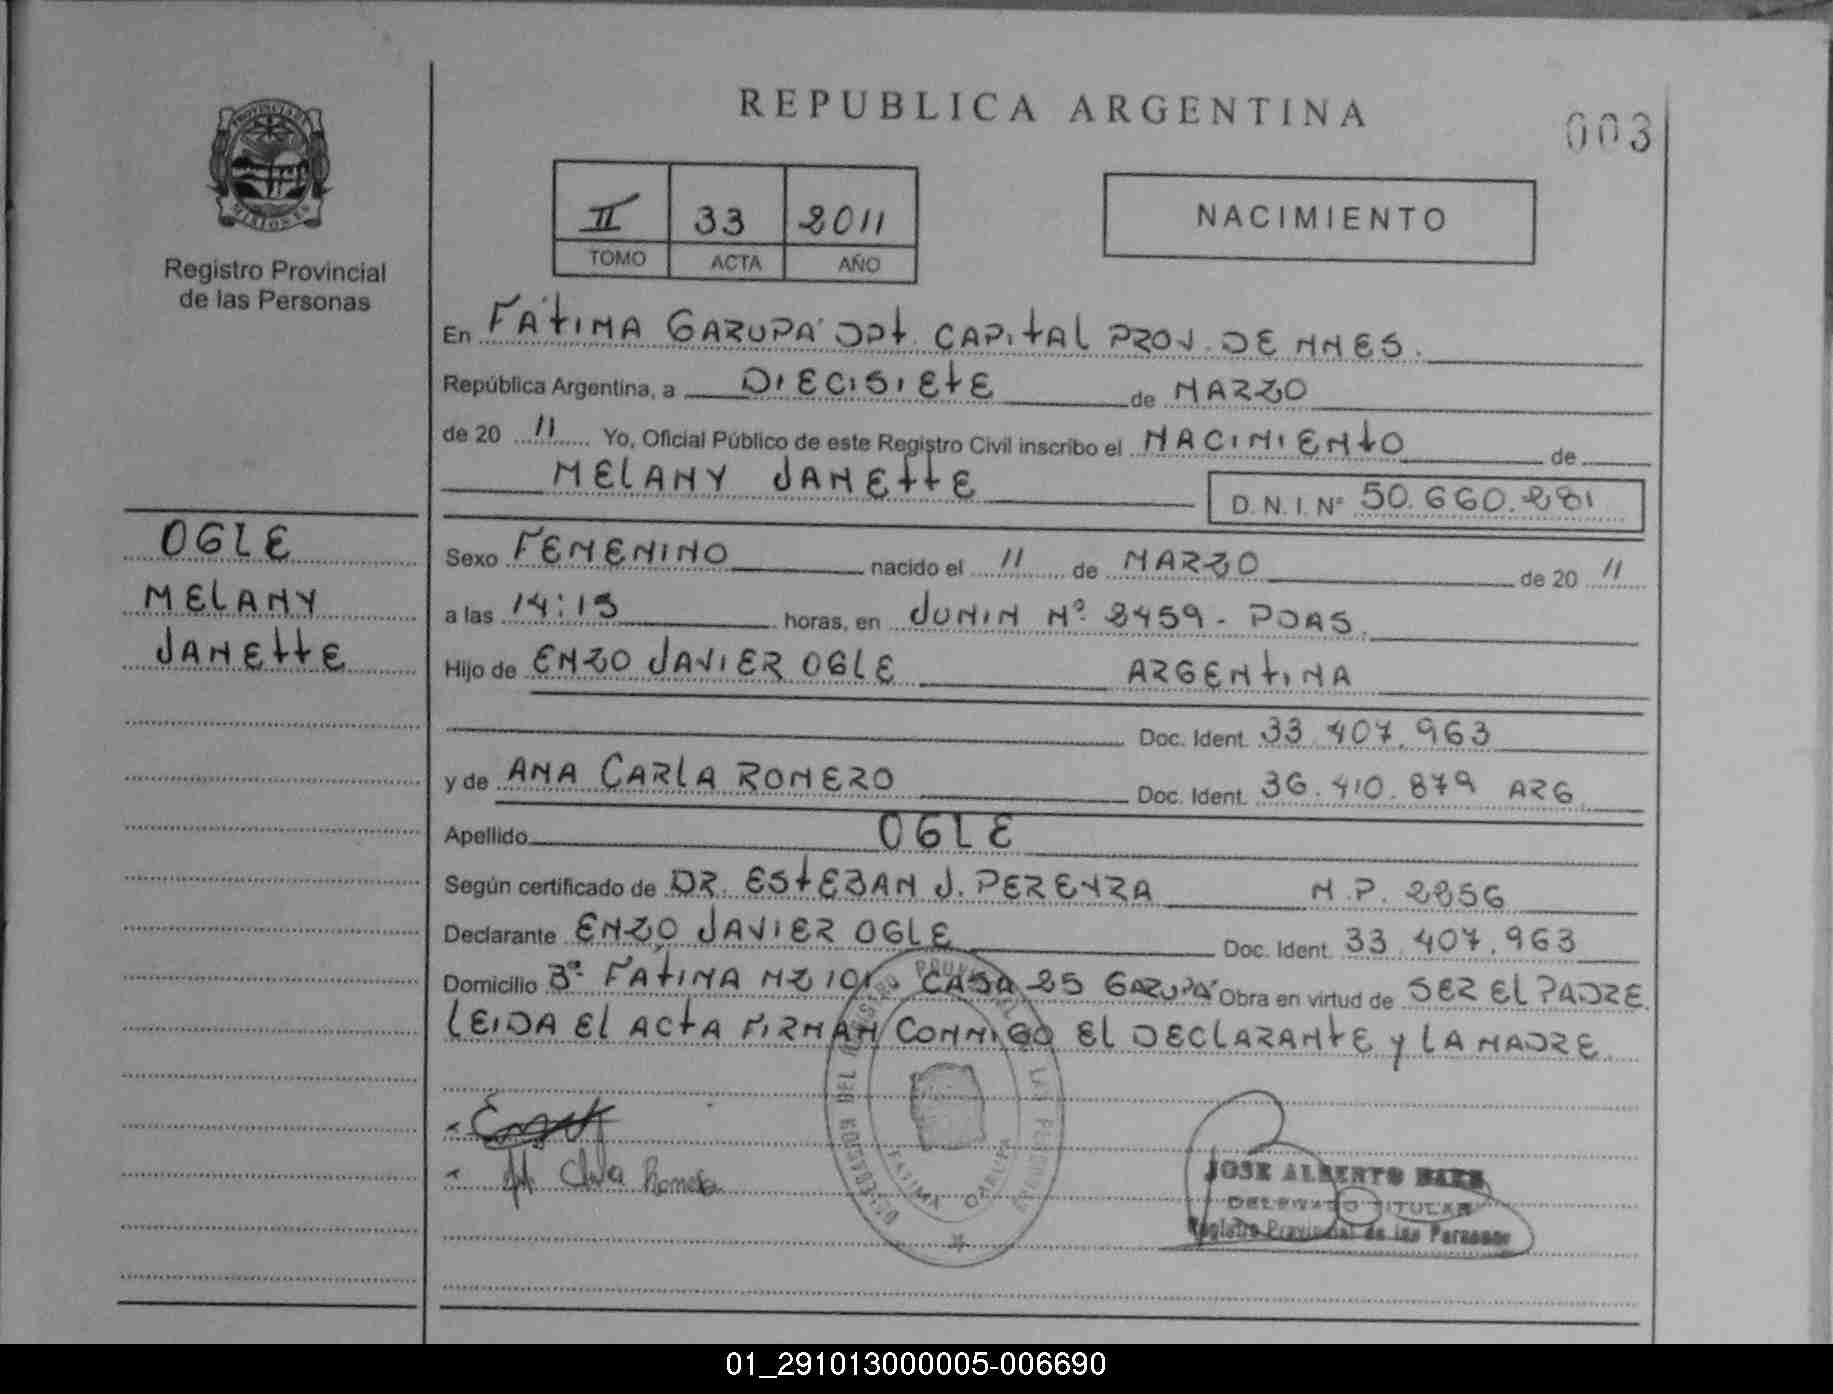 REPUBLICA ARGENTINA
003
II 33 2011
TOMO ACTA AÑO
NACIMIENTO
PROVINCIA DE
MISIONES
Registro Provincial
de las Personas
OGLE
MELANY
JANETTE
En FÁTIMA GARUPÁ DPT. CAPITAL PROV. DE MNES.
República Argentina, a DIECISIETE de MARZO
de 20 11 Yo, Oficial Público de este Registro Civil inscribo el NACIMIENTO de
MELANY JANETTE D. N. I. Nº 50.660.281
Sexo FEMENINO nacido el 11 de MARZO de 20 11
a las 14:15 horas, en JUNIN Nº 2459 - PDAS.
Hijo de ENZO JAVIER OGLE ARGENTINA
Doc. Ident. 33.407.963
y de ANA CARLA ROMERO Doc. Ident. 36.410.879 ARG
Apellido OGLE
Según certificado de DR. ESTEBAN J. PEREYRA M.P. 2856
Declarante ENZO JAVIER OGLE Doc. Ident. 33.407.963
Domicilio Bº FÁTIMA MZ 101 CASA 25 GARUPÁ Obra en virtud de SER EL PADRE.
LEIDA EL ACTA FIRMAN CONMIGO EL DECLARANTE Y LA MADRE
Romero
JOSE ALBERTO
DELEGADO TITULAR
Registro Provincial de las Personas
FATIMA GARUPA
01_291013000005-006690